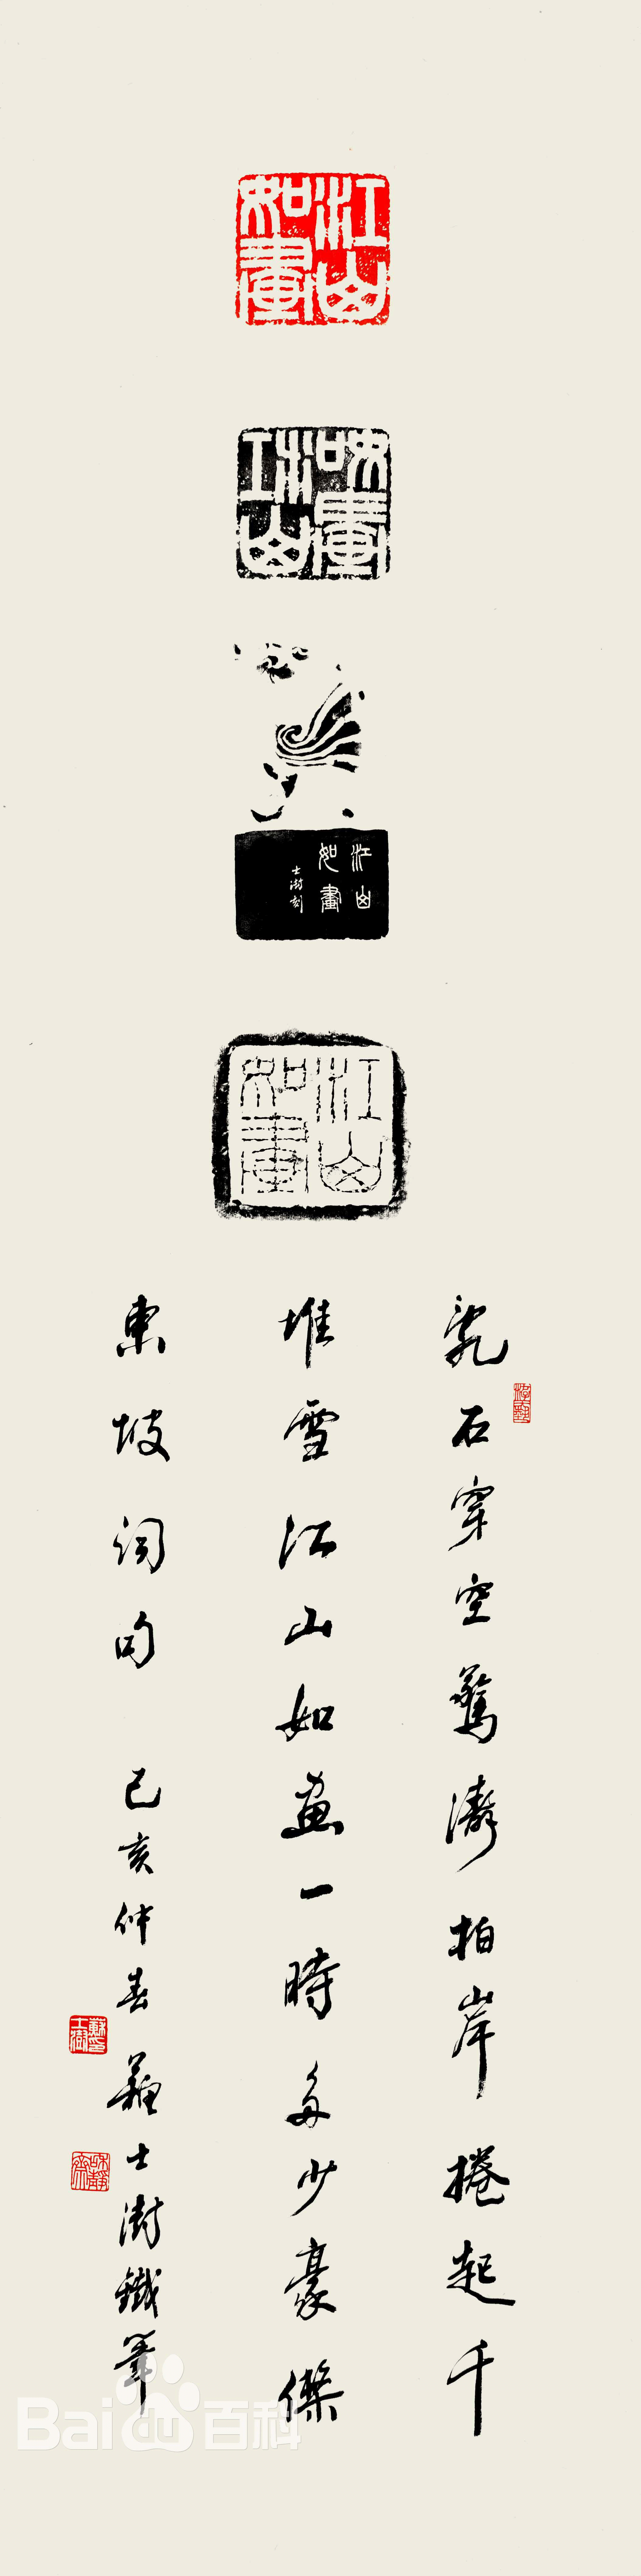 江山
如畫
江山
如畫
江山
如畫
士澍刻
江山
如畫
亂石穿空驚濤拍岸捲起千
堆雪江山如畫一時多少豪傑
東坡詞句
己亥仲春蘇士澍鐵筆
蘇士澍
Bai百科